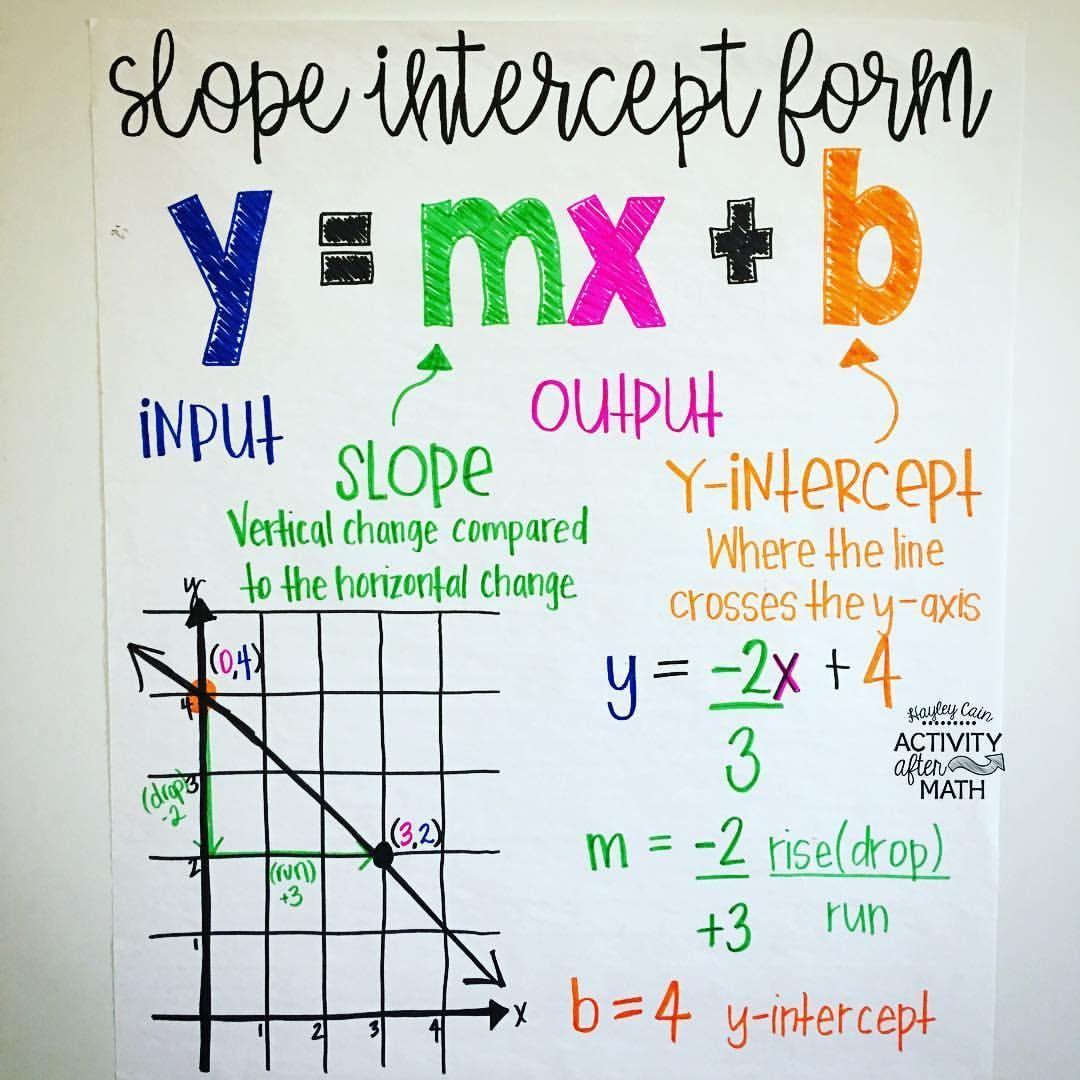 slope intercept form
y = mx + b
INPUT
OUTPUT
SLOPE
Vertical change compared
to the horizontal change
Y-INTERCEPT
Where the line
crosses the y-axis
y = -2x + 4
3
Hayley Cain
ACTIVITY
after
MATH
m = -2 rise(drop)
+3 run
b = 4 y-intercept
y
(0,4)
4
3
(drop)
-2
(3,2)
2
(run)
+3
1
x
1 2 3 4